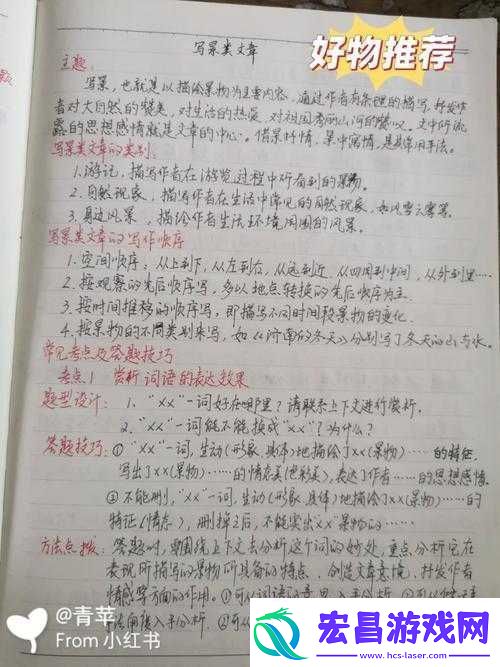 写景类文章
好物推荐
主题:
写景,也就是以描绘景物为主要内容,通过作者有条理的描写,抒发作
者对大自然的赞美,对生活的热爱,对祖国秀丽山河的赞叹。文中所流
露的思想感情就是文章的中心。借景抒情,景中寓情,是其常用手法。
写景类文章的类别:
1.游记,描写作者在游览过程中所看到的景物。
2.自然现象,描写作者在生活中常见的自然现象,如风雪云雾等。
3.身边风景,描绘作者生活环境周围的风景。
写景类文章的写作顺序
1.空间顺序:从上到下,从左到右,从远到近,从四周到中间,从外到里……
2.按观察的先后顺序写,多以地点转换的先后顺序为主.
3.按时间推移的顺序写,即描写不同时间段景物的变化.
4.按景物的不同类别来写,如《济南的冬天》分别写了冬天的山与水。
常见考点及答题技巧
考点1 赏析词语的表达效果
题型设计: 1、“XX”一词好在哪里?请联系上下文进行赏析.
2.“XX”一词能不能换成“XX”?为什么?
答题技巧:①“XX”一词,生动(形象、具体)地描绘了XX(景物)……的特征,
写出了XX(景物)……的情态美(色彩美),表达了作者……的思想感情.
②不能删,“XX”一词,生动(形象、具体)地描绘了XX(景物)……的
特征(情态),删掉之后,不能突出XX景物的……
方法点拨: 答题时,要围绕上下文去分析这个词的妙处,重点分析它在
表现所描写的景物所具备的特点、创造文章意境、抒发作者
情感等方面的作用。①可从词语的意思入手分析.②可从
角度入手分析.③可从
@青苹
From 小红书
宏昌游戏网
www.hcs-laser.com